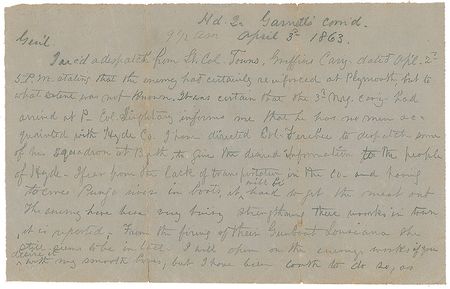 Hd Qr Garnett's comd.
9½ am April 3d 1863.
Genl.
I recd a despatch from Lt. Col. Towns, Griffins Cavy. dated Apl. 2d
5 P.M. stating that the enemy had certainly reinforced at Plymouth but to
what extent was not known. It was certain that the 3d N.Y. cavy had
arrived at P— Col. Singletary informs me that he has no men ac-
quainted with Hyde Co. I have directed Col. Ferebee to despatch some
of his squadron at Bath, to give the desired information to the people
of Hyde. I fear from the lack of transportation in the Co— and having
to cross Pungo river in boats, it will be hard to get the meat out
The enemy have been very busy strengthening their works in town
it is reported. From the firing of their Gunboat Louisiana she
still seems to be in bad. I will open on the enemy works if you
desire it with my smooth bores, but I have been loath to do so, as